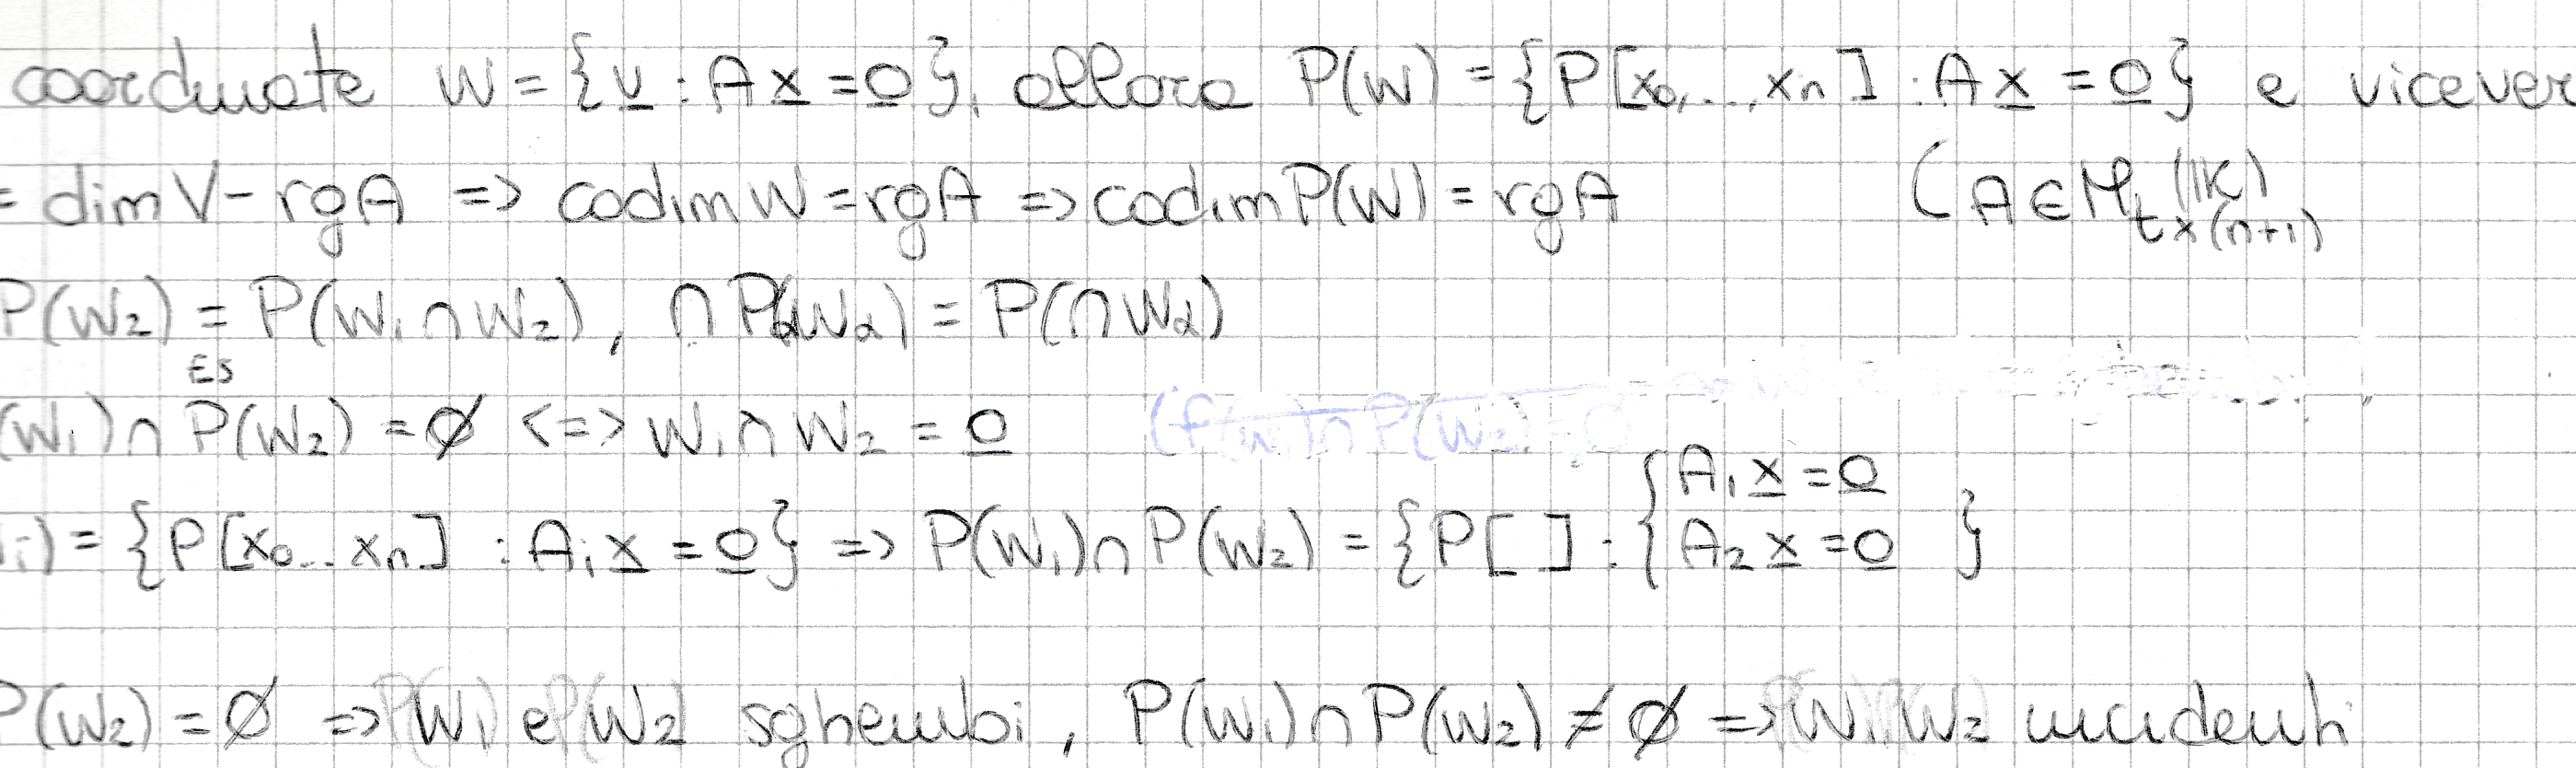 coordinate W = {v : A x = 0}, allora P(W) = {P[x₀,...,xₙ] : A x = 0} e vicever
= dim V - rgA => codim W = rgA => codim P(W) = rgA (A ∈ M_{t×(n+1)}(K)
P(W₂) = P(W₁ ∩ W₂), ∩ P(W_α) = P(∩ W_α)
ES
(W₁) ∩ P(W₂) = ∅ <=> W₁ ∩ W₂ = 0
i) = {P[x₀...xₙ] : Aᵢ x = 0} => P(W₁) ∩ P(W₂) = {P[ ] : { A₁ x = 0
A₂ x = 0 }
P(W₂) = ∅ => W₁ e W₂ sghembi, P(W₁) ∩ P(W₂) ≠ ∅ => W₁ W₂ incidenti